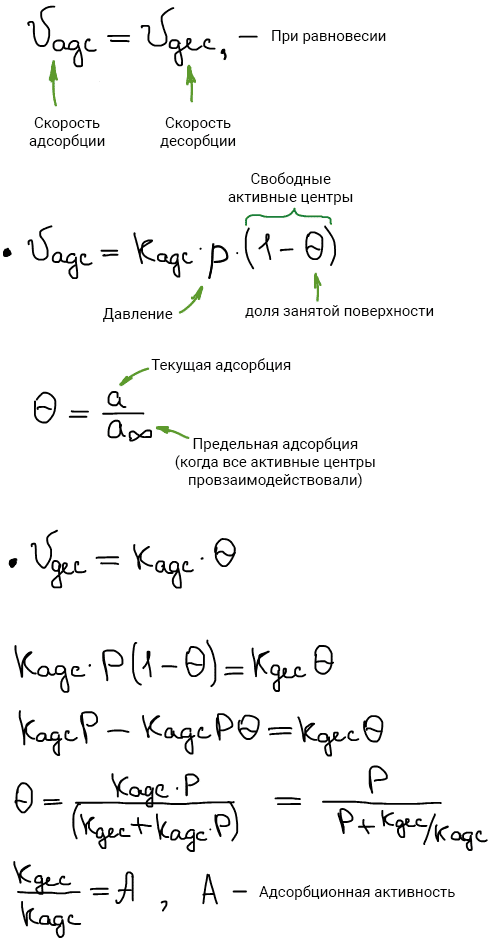 υадс = υдес, — При равновесии
Скорость адсорбции
Скорость десорбции
Свободные активные центры
• υадс = Kадс · p · (1 − Θ)
Давление
доля занятой поверхности
Текущая адсорбция
Θ = a / a∞
Предельная адсорбция
(когда все активные центры
провзаимодействовали)
• υдес = Kадс · Θ
Kадс · P(1 − Θ) = Kдес Θ
KадсP − KадсPΘ = KдесΘ
Θ = Kадс · P / (Kдес + Kадс · P) = P / (P + Kдес/Kадс)
Kдес / Kадс = A , A — Адсорбционная активность